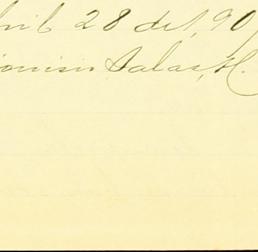 ril 28 de 1,90
ionisio Salas, H.